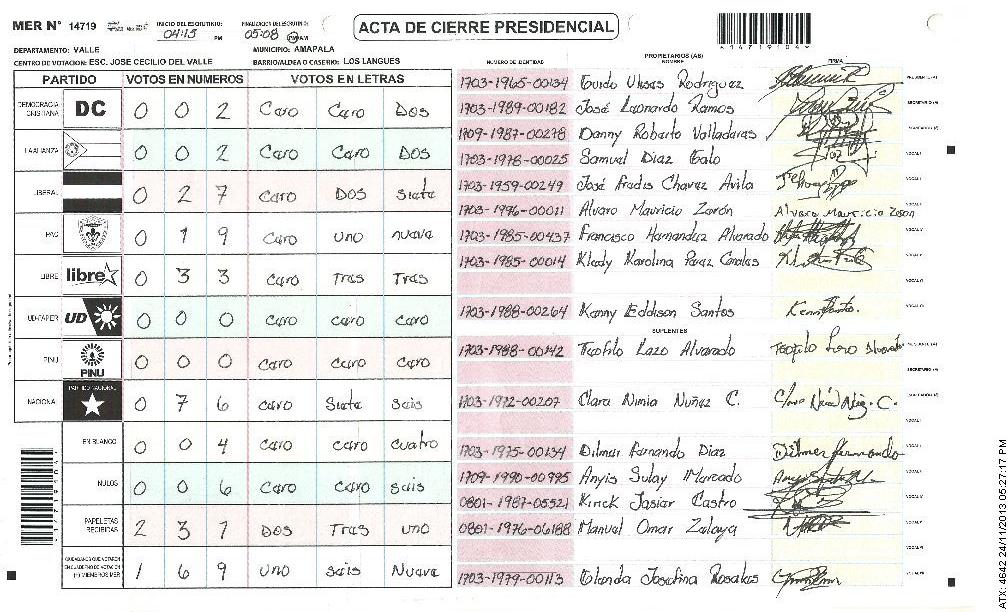 MER N° 14719
INICIO DEL ESCRUTINIO:
04:15 PM
FINALIZACIÓN DEL ESCRUTINIO:
05:08 PM AM
ACTA DE CIERRE PRESIDENCIAL
DEPARTAMENTO: VALLE
MUNICIPIO: AMAPALA
CENTRO DE VOTACION: ESC. JOSE CECILIO DEL VALLE
BARRIO/ALDEA O CASERIO: LOS LANGUES
PARTIDO VOTOS EN NUMEROS VOTOS EN LETRAS
DEMOCRACIA CRISTIANA DC 0 0 2 Cero Cero Dos
LA ALIANZA 0 0 2 Cero Cero Dos
LIBERAL 0 2 7 Cero Dos Siete
PAC 0 1 9 Cero uno nueve
LIBRE libre 0 3 3 Cero Tres Tres
UD-FAPER UD 0 0 0 Cero cero cero
PINU PINU 0 0 0 cero cero cero
NACIONAL PARTIDO NACIONAL 0 7 6 cero Siete seis
EN BLANCO 0 0 4 cero cero cuatro
NULOS 0 0 6 Cero Cero seis
PAPELETAS RECIBIDAS 2 3 1 Dos Tres uno
1 6 9 uno Seis Nueve
NUMERO DE IDENTIDAD
PROPIETARIOS (AS)
NOMBRE
FIRMA
1703-1965-00134 Guido Ulises Rodriguez
1703-1989-00182 José Leonardo Ramos
1709-1987-00278 Danny Roberto Valladares
1703-1978-00025 Samuel Diaz Galo
1703-1959-00249 José Fredis Chavez Avila
1703-1996-00011 Alvaro Mauricio Zerón Alvaro Mauricio Zeron
1703-1985-00437 Francisco Hernandez Alvarado
1703-1985-00014 Kledy Karolina Perez Canales
1703-1988-00264 Kenny Eddison Santos
SUPLENTES
1703-1988-00142 Teofilo Lazo Alvarado
1703-1972-00207 Clara Nimia Nuñez C.
1703-1975-00134 Dilmer Fernando Diaz Dilmer Fernando
1709-1990-00995 Anyis Sulay Mercado
0801-1987-05521 Kirick Josier Castro
0801-1976-06188 Manuel Omar Zelaya
1703-1979-00113 Olanda Josefina Rosales
ATX: 4642 24/11/2013 05:27:17 PM